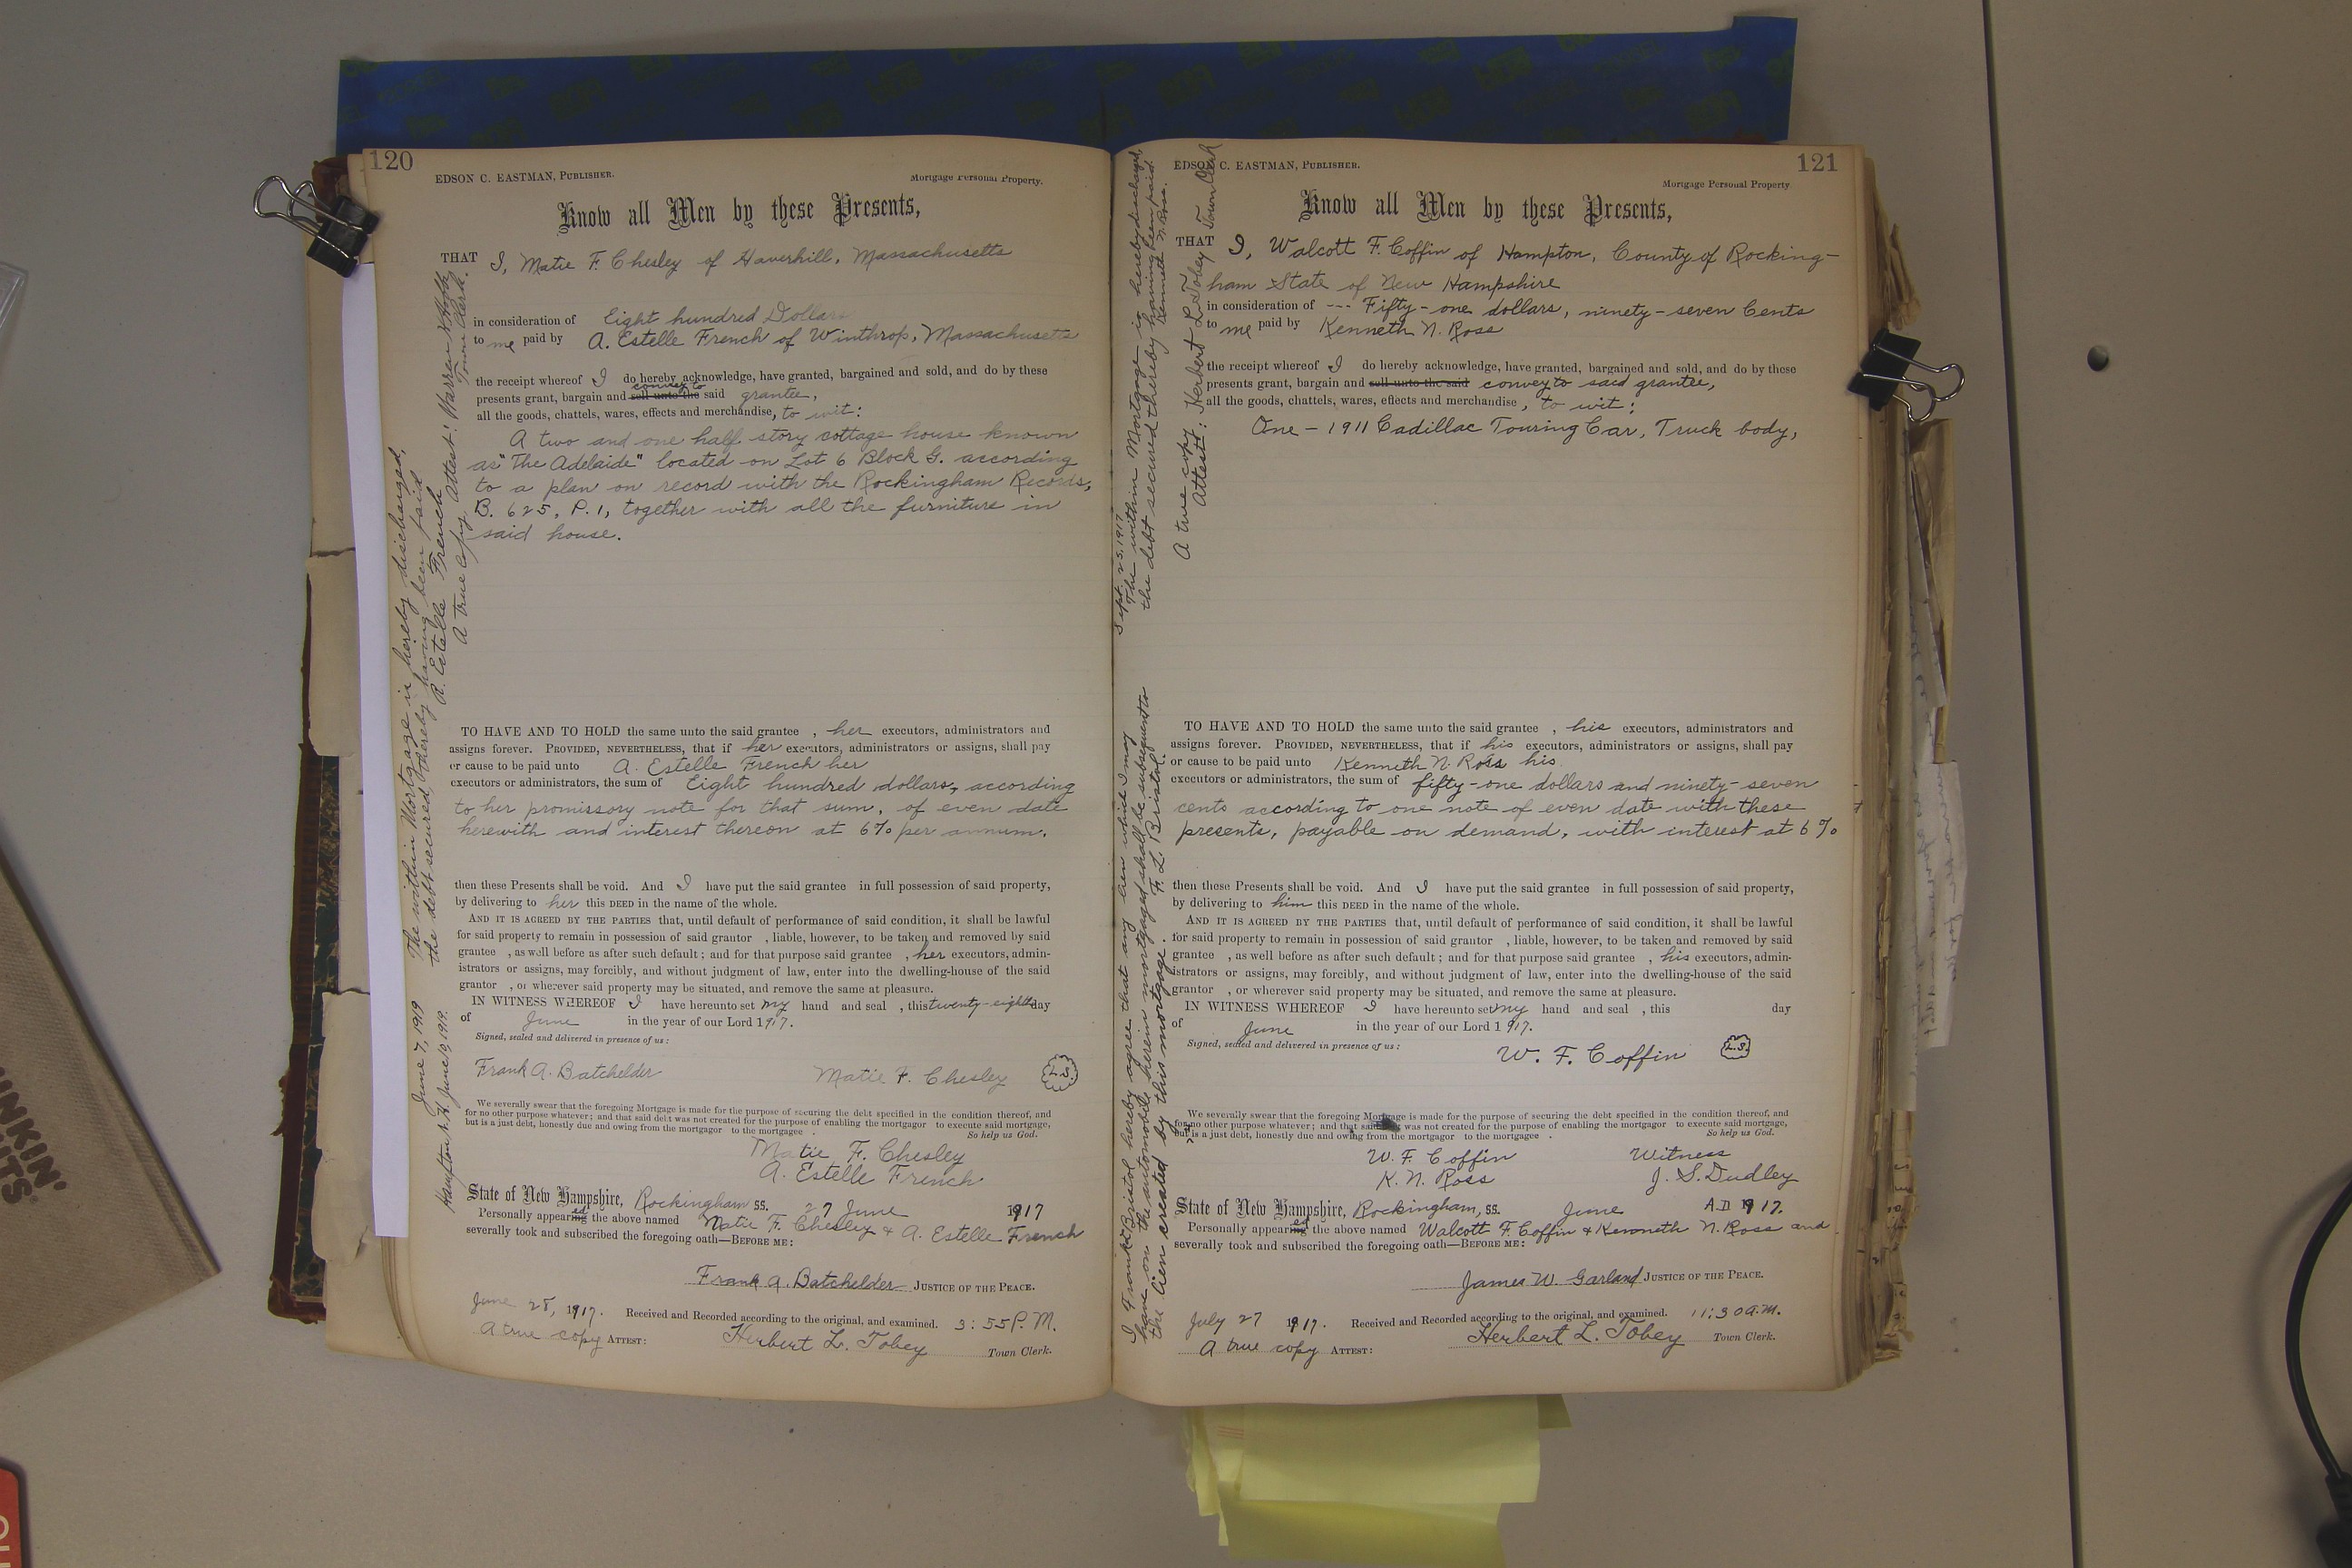 120
EDSON C. EASTMAN, PUBLISHER.
Mortgage Personal Property.
Know all Men by these Presents,
THAT I, Matie F. Chesley of Haverhill, Massachusetts
in consideration of Eight hundred Dollars
to me paid by A. Estelle French of Winthrop, Massachusetts
the receipt whereof I do hereby acknowledge, have granted, bargained and sold, and do by these
convey to
presents grant, bargain and sell unto the said grantee,
all the goods, chattels, wares, effects and merchandise, to wit:
A two and one half story cottage house known
as "The Adelaide" located on Lot 6 Block G. according
to a plan on record with the Rockingham Records,
B. 625, P. 1, together with all the furniture in
said house.
TO HAVE AND TO HOLD the same unto the said grantee , her executors, administrators and
assigns forever. PROVIDED, NEVERTHELESS, that if her executors, administrators or assigns, shall pay
or cause to be paid unto A. Estelle French her
executors or administrators, the sum of Eight hundred dollars, according
to her promissory note for that sum, of even date
herewith and interest thereon at 6% per annum.
then these Presents shall be void. And I have put the said grantee in full possession of said property,
by delivering to her this DEED in the name of the whole.
AND IT IS AGREED BY THE PARTIES that, until default of performance of said condition, it shall be lawful
for said property to remain in possession of said grantor , liable, however, to be taken and removed by said
grantee , as well before as after such default; and for that purpose said grantee , her executors, admin-
istrators or assigns, may forcibly, and without judgment of law, enter into the dwelling-house of the said
grantor , or wherever said property may be situated, and remove the same at pleasure.
IN WITNESS WHEREOF I have hereunto set my hand and seal , this twenty-eighth day
of June in the year of our Lord 1917.
Signed, sealed and delivered in presence of us:
Frank A. Batchelder Matie F. Chesley L.S.
We severally swear that the foregoing Mortgage is made for the purpose of securing the debt specified in the condition thereof, and
for no other purpose whatever; and that said debt was not created for the purpose of enabling the mortgagor to execute said mortgage,
but is a just debt, honestly due and owing from the mortgagor to the mortgagee . So help us God.
Matie F. Chesley
A. Estelle French
State of New Hampshire, Rockingham SS. 27 June 1917
ed
Personally appearing the above named Matie F. Chesley & A. Estelle French
severally took and subscribed the foregoing oath—BEFORE ME:
Frank A. Batchelder JUSTICE OF THE PEACE.
June 28, 1917. Received and Recorded according to the original, and examined. 3:55 P.M.
A true copy ATTEST: Herbert L. Tobey Town Clerk.
June 7, 1919 The within Mortgage is hereby discharged,
the debt secured thereby having been paid
A. Estelle French
Hampton N.H. June 10, 1919. A true copy Attest: Warren
Town Clerk.
121
EDSON C. EASTMAN, PUBLISHER.
Mortgage Personal Property
Know all Men by these Presents,
THAT I, Walcott F. Coffin of Hampton, County of Rocking-
ham State of New Hampshire
in consideration of --- Fifty-one dollars, ninety-seven Cents
to me paid by Kenneth N. Ross
the receipt whereof I do hereby acknowledge, have granted, bargained and sold, and do by these
presents grant, bargain and sell unto the said convey to said grantee,
all the goods, chattels, wares, effects and merchandise, to wit:
One - 1911 Cadillac Touring Car, Truck body,
TO HAVE AND TO HOLD the same unto the said grantee , his executors, administrators and
assigns forever. PROVIDED, NEVERTHELESS, that if his executors, administrators or assigns, shall pay
or cause to be paid unto Kenneth N. Ross his
executors or administrators, the sum of fifty-one dollars and ninety-seven
cents according to one note of even date with these
presents, payable on demand, with interest at 6%
then these Presents shall be void. And I have put the said grantee in full possession of said property,
by delivering to him this DEED in the name of the whole.
AND IT IS AGREED BY THE PARTIES that, until default of performance of said condition, it shall be lawful
for said property to remain in possession of said grantor , liable, however, to be taken and removed by said
grantee , as well before as after such default; and for that purpose said grantee , his executors, admin-
istrators or assigns, may forcibly, and without judgment of law, enter into the dwelling-house of the said
grantor , or wherever said property may be situated, and remove the same at pleasure.
IN WITNESS WHEREOF I have hereunto set my hand and seal , this day
of June in the year of our Lord 1917.
Signed, sealed and delivered in presence of us:
W. F. Coffin L.S.
We severally swear that the foregoing Mortgage is made for the purpose of securing the debt specified in the condition thereof, and
for no other purpose whatever; and that said was not created for the purpose of enabling the mortgagor to execute said mortgage,
but is a just debt, honestly due and owing from the mortgagor to the mortgagee . So help us God.
W. F. Coffin Witness
K. N. Ross J. S. Dudley
State of New Hampshire, Rockingham, SS. June A.D 1917.
ed
Personally appearing the above named Walcott F. Coffin & Kenneth N. Ross and
severally took and subscribed the foregoing oath—BEFORE ME:
James W. Garland JUSTICE OF THE PEACE.
July 27 1917. Received and Recorded according to the original, and examined. 11:30 A.M.
A true copy ATTEST: Herbert L. Tobey Town Clerk.
Sept. 25, 1917
The within Mortgage is hereby discharged,
the debt secured thereby having been paid.
Kenneth N. Ross.
A true copy
Attest: Herbert L. Tobey Town Clerk
I Frank Bristol hereby agree that any lien which I may
have on the automobile herein mortgaged shall be subsequent to
the lien created by this mortgage. F. L. Bristol.